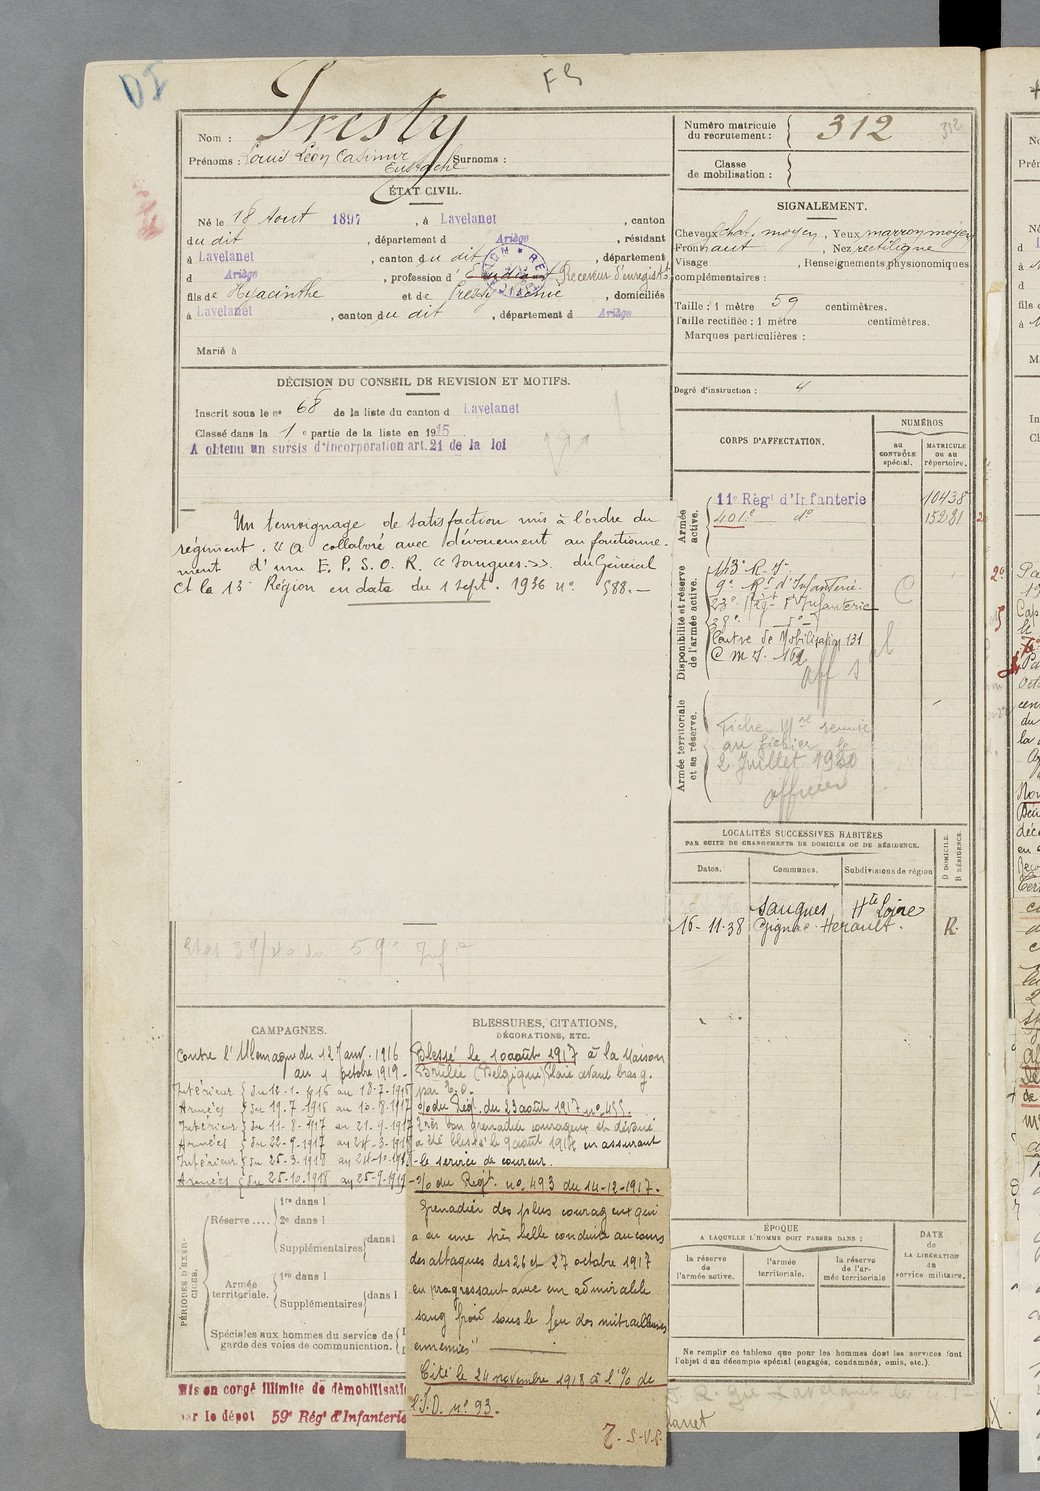 OI
F S
Nom : Presty
Prénoms : Louis Léon Casimir Surnoms :
Eustache
ÉTAT CIVIL.
Né le 18 Aout 1897 , à Lavelanet , canton
du dit , département d Ariège , résidant
à Lavelanet , canton du dit , département
d Ariège , profession d' Etudiant Receveur d'enregist.
fils de Hyacinthe et de Presty , domiciliés
à Lavelanet , canton du dit , département d Ariège
Marié à
DÉCISION DU CONSEIL DE REVISION ET MOTIFS.
Inscrit sous le n° 68 de la liste du canton d Lavelanet
Classé dans la 1 e partie de la liste en 1915
A obtenu un sursis d'incorporation art. 21 de la loi
Un temoignage de satisfaction mis à l'ordre du
régiment. "a collaboré avec dévouement au fonctionne-
ment d'une E. P. S. O. R. "Saugues" du Général
Ct la 13e Région en date du 1 sept. 1936 n° 588.—
59e Infie
CAMPAGNES.
Contre l'Allemagne du 12 Janv. 1916
au 1 octobre 1919
Intérieur du 12-1-1916 au 18-7-1916
Armées du 19-7-1916 au 10-8-1917
Intérieur du 11-8-1917 au 21-9-1917
Armées du 22-9-1917 au 24-3-1918
Intérieur du 25-3-1918 au 24-10-1918
Armées du 25-10-1918 au 25-9-1919
PÉRIODES D'EXERCICES.
Réserve ....
1re dans l
2e dans l
Supplémentaires dans l
Armée territoriale.
1re dans l
Supplémentaires dans l
Spéciales aux hommes du service de
garde des voies de communication.
Mis en congé illimité de démobilisati
par le dépôt 59e Régt d'Infanterie
BLESSURES, CITATIONS,
DÉCORATIONS, ETC.
Blessé le 10 août 1917 à la Maison
Brulée (Belgique) plaie avant bras g.
par E.O.
O/o du Régt. du 23 août 1917 n° 455.
Très bon grenadier courageux et dévoué
a été blessé le 9 août 1917 en assurant
le service de coureur.
O/o du Régt. n° 493 du 14-12-1917.
Grenadier des plus courageux qui
a eu une très belle conduite au cours
des attaques des 26 et 27 octobre 1917
en progressant avec un admirable
sang froid sous le feu des mitrailleuses
ennemies"
Cité le 24 novembre 1918 à l'O/o de
l'I.D. n° 93.
T. S. V. P.
Numéro matricule
du recrutement : 312
312
Classe
de mobilisation :
SIGNALEMENT.
Cheveux chat. moyen , Yeux marron moyen
Front haut , Nez rectiligne
Visage , Renseignements physionomiques
complémentaires :
Taille : 1 mètre 59 centimètres.
Taille rectifiée : 1 mètre centimètres.
Marques particulières :
Degré d'instruction : 4
CORPS D'AFFECTATION.
NUMÉROS
au
CONTRÔLE
spécial.
MATRICULE
OU AU
répertoire.
Armée
active.
11e Régt d'Infanterie 10438
401e do 15281
Disponibilité et réserve
de l'armée active.
143e R. I.
9e Rt d'Infanterie.
23e Régt d'Infanterie
38e —do—
Centre de Mobilisation 131
C M I. 162
aff
Armée territoriale
et sa réserve.
Fiche Mle remise
au fichier le
2 Juillet 1920
officier
LOCALITÉS SUCCESSIVES HABITÉES
PAR SUITE DE CHANGEMENTS DE DOMICILE OU DE RÉSIDENCE.
Dates. Communes. Subdivisions de région
D DOMICILE.
R RÉSIDENCE.
Saugues Hte Loire
16-11-38 Gignac Herault. R.
ÉPOQUE
A LAQUELLE L'HOMME DOIT PASSER DANS :
la réserve
de
l'armée active.
l'armée
territoriale.
la réserve
de l'ar-
mée territoriale
DATE
de
LA LIBÉRATION
du
service militaire.
Ne remplir ce tableau que pour les hommes dont les services font
l'objet d'un décompte spécial (engagés, condamnés, omis, etc.).